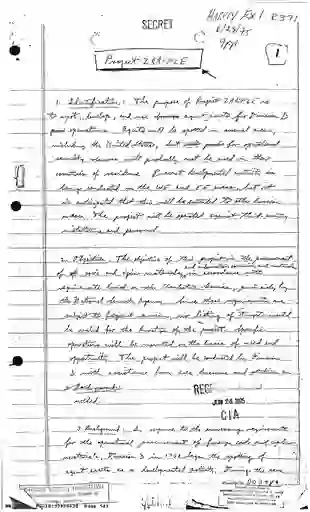 SECRET
HARVEY EX 1 R371
6/25/75
1
Project ZRRIFLE
1. Identification: The purpose of Project ZRRIFLE is
to spot, develop, and use agent assets for Division D
operations. Agents will be spotted in several areas,
including the United States, but for operational
security reasons will probably not be used in their
countries of residence. Present developmental activity is
being conducted in the WE and EE areas, but it
is anticipated that this will be extended to other division
areas. The project will be operated against third country
installations and personnel.
2. Objective: The objective of this project is the procurement
of code and cipher materials, in accordance with
requirements levied on the Clandestine Services, primarily by
the National Security Agency. Since these requirements are
subject to frequent revision, no listing of targets would
be valid for the duration of the project. Specific
operations will be mounted on the basis of need and
opportunity. The project will be conducted by Division
D with assistance from area divisions and stations as
needed.
Background
REC
JUN 20 1975
CIA
3. Background: In response to the increasing requirements
for the operational procurement of foreign code and cipher
materials, Division D in 1960 began the spotting of
agent assets as a developmental activity. During the same